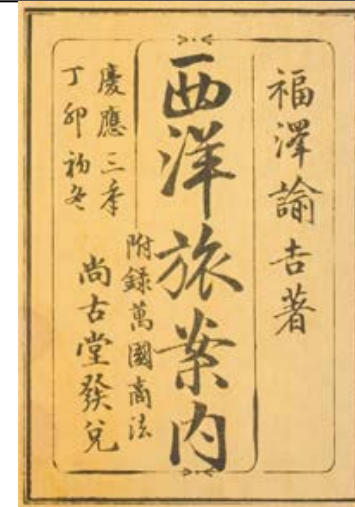 福澤諭吉著
西洋旅案内
附録萬國商法
慶應三年
丁卯初冬
尚古堂發兌